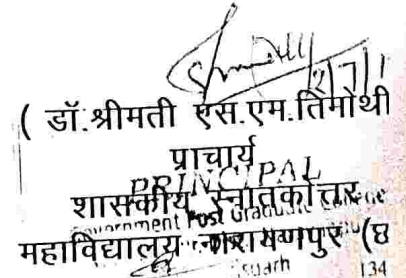 ( डॉ.श्रीमती एस.एम.तिमोथी
प्राचार्य
PRINCIPAL
शासकीय स्नातकोत्तर
Government Post Graduate
महाविद्यालय नारायणपुर (छ
134